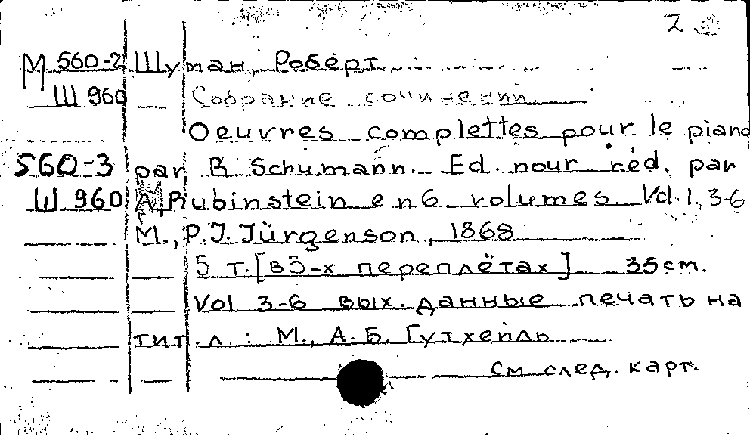 2
М 560-2 Шуман, Роберт
Ш 960 Собрание сочинений
Oeuvres complettes pour le piano
560-3 par R Schumann. Ed. nour réd. par
Ш 960 A. Rubinstein en 6 volumes Vol. 1, 3-6
M., P. J. Jürgenson, 1868
5 т. [в 3-х переплётах] 35 см.
Vol 3-6 вых. данные печать на
тит. л.: М., А. Б. Гутхейль
См след. карт.